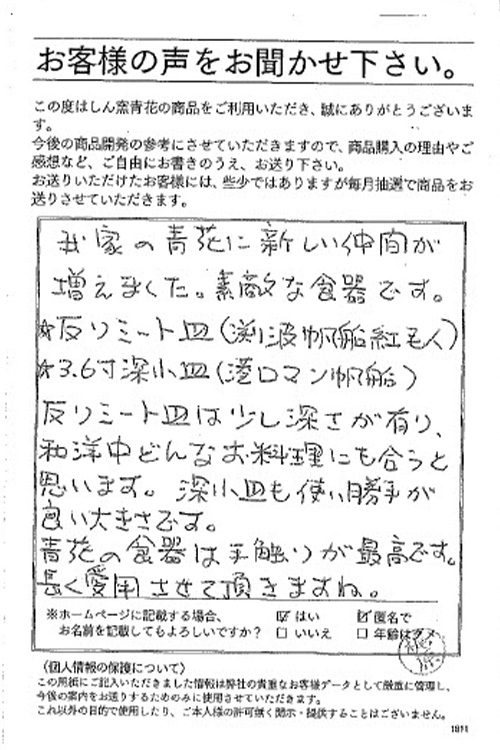 お客様の声をお聞かせ下さい。
この度はしん窯青花の商品をご利用いただき、誠にありがとうございま
す。
今後の商品開発の参考にさせていただきますので、商品購入の理由やご
感想など、ご自由にお書きのうえ、お送り下さい。
お送りいただけたお客様には、些少ではありますが毎月抽選で商品をお
送りさせていただきます。
我家の青花に新しい仲間が
増えました。素敵な食器です。
☆反リミート皿(渕波帆船紅毛人)
☆3.6寸深小皿(港ロマン帆船)
反リミート皿は少し深さが有り、
和洋中どんなお料理にも合うと
思います。深小皿も使い勝手が
良い大きさです。
青花の食器は手触りが最高です。
長く愛用させて頂きますね。
※ホームページに記載する場合、 ☑ はい ☑ 匿名で
お名前を記載してもよろしいですか? □ いいえ □ 年齢はダメ
〈個人情報の保護について〉
この用紙にご記入いただきました情報は弊社の貴重なお客様データとして厳重に管理し、
今後の案内をお送りするためのみに使用させていただきます。
これ以外の目的で使用したり、ご本人様の許可無く開示・提供することはございません。